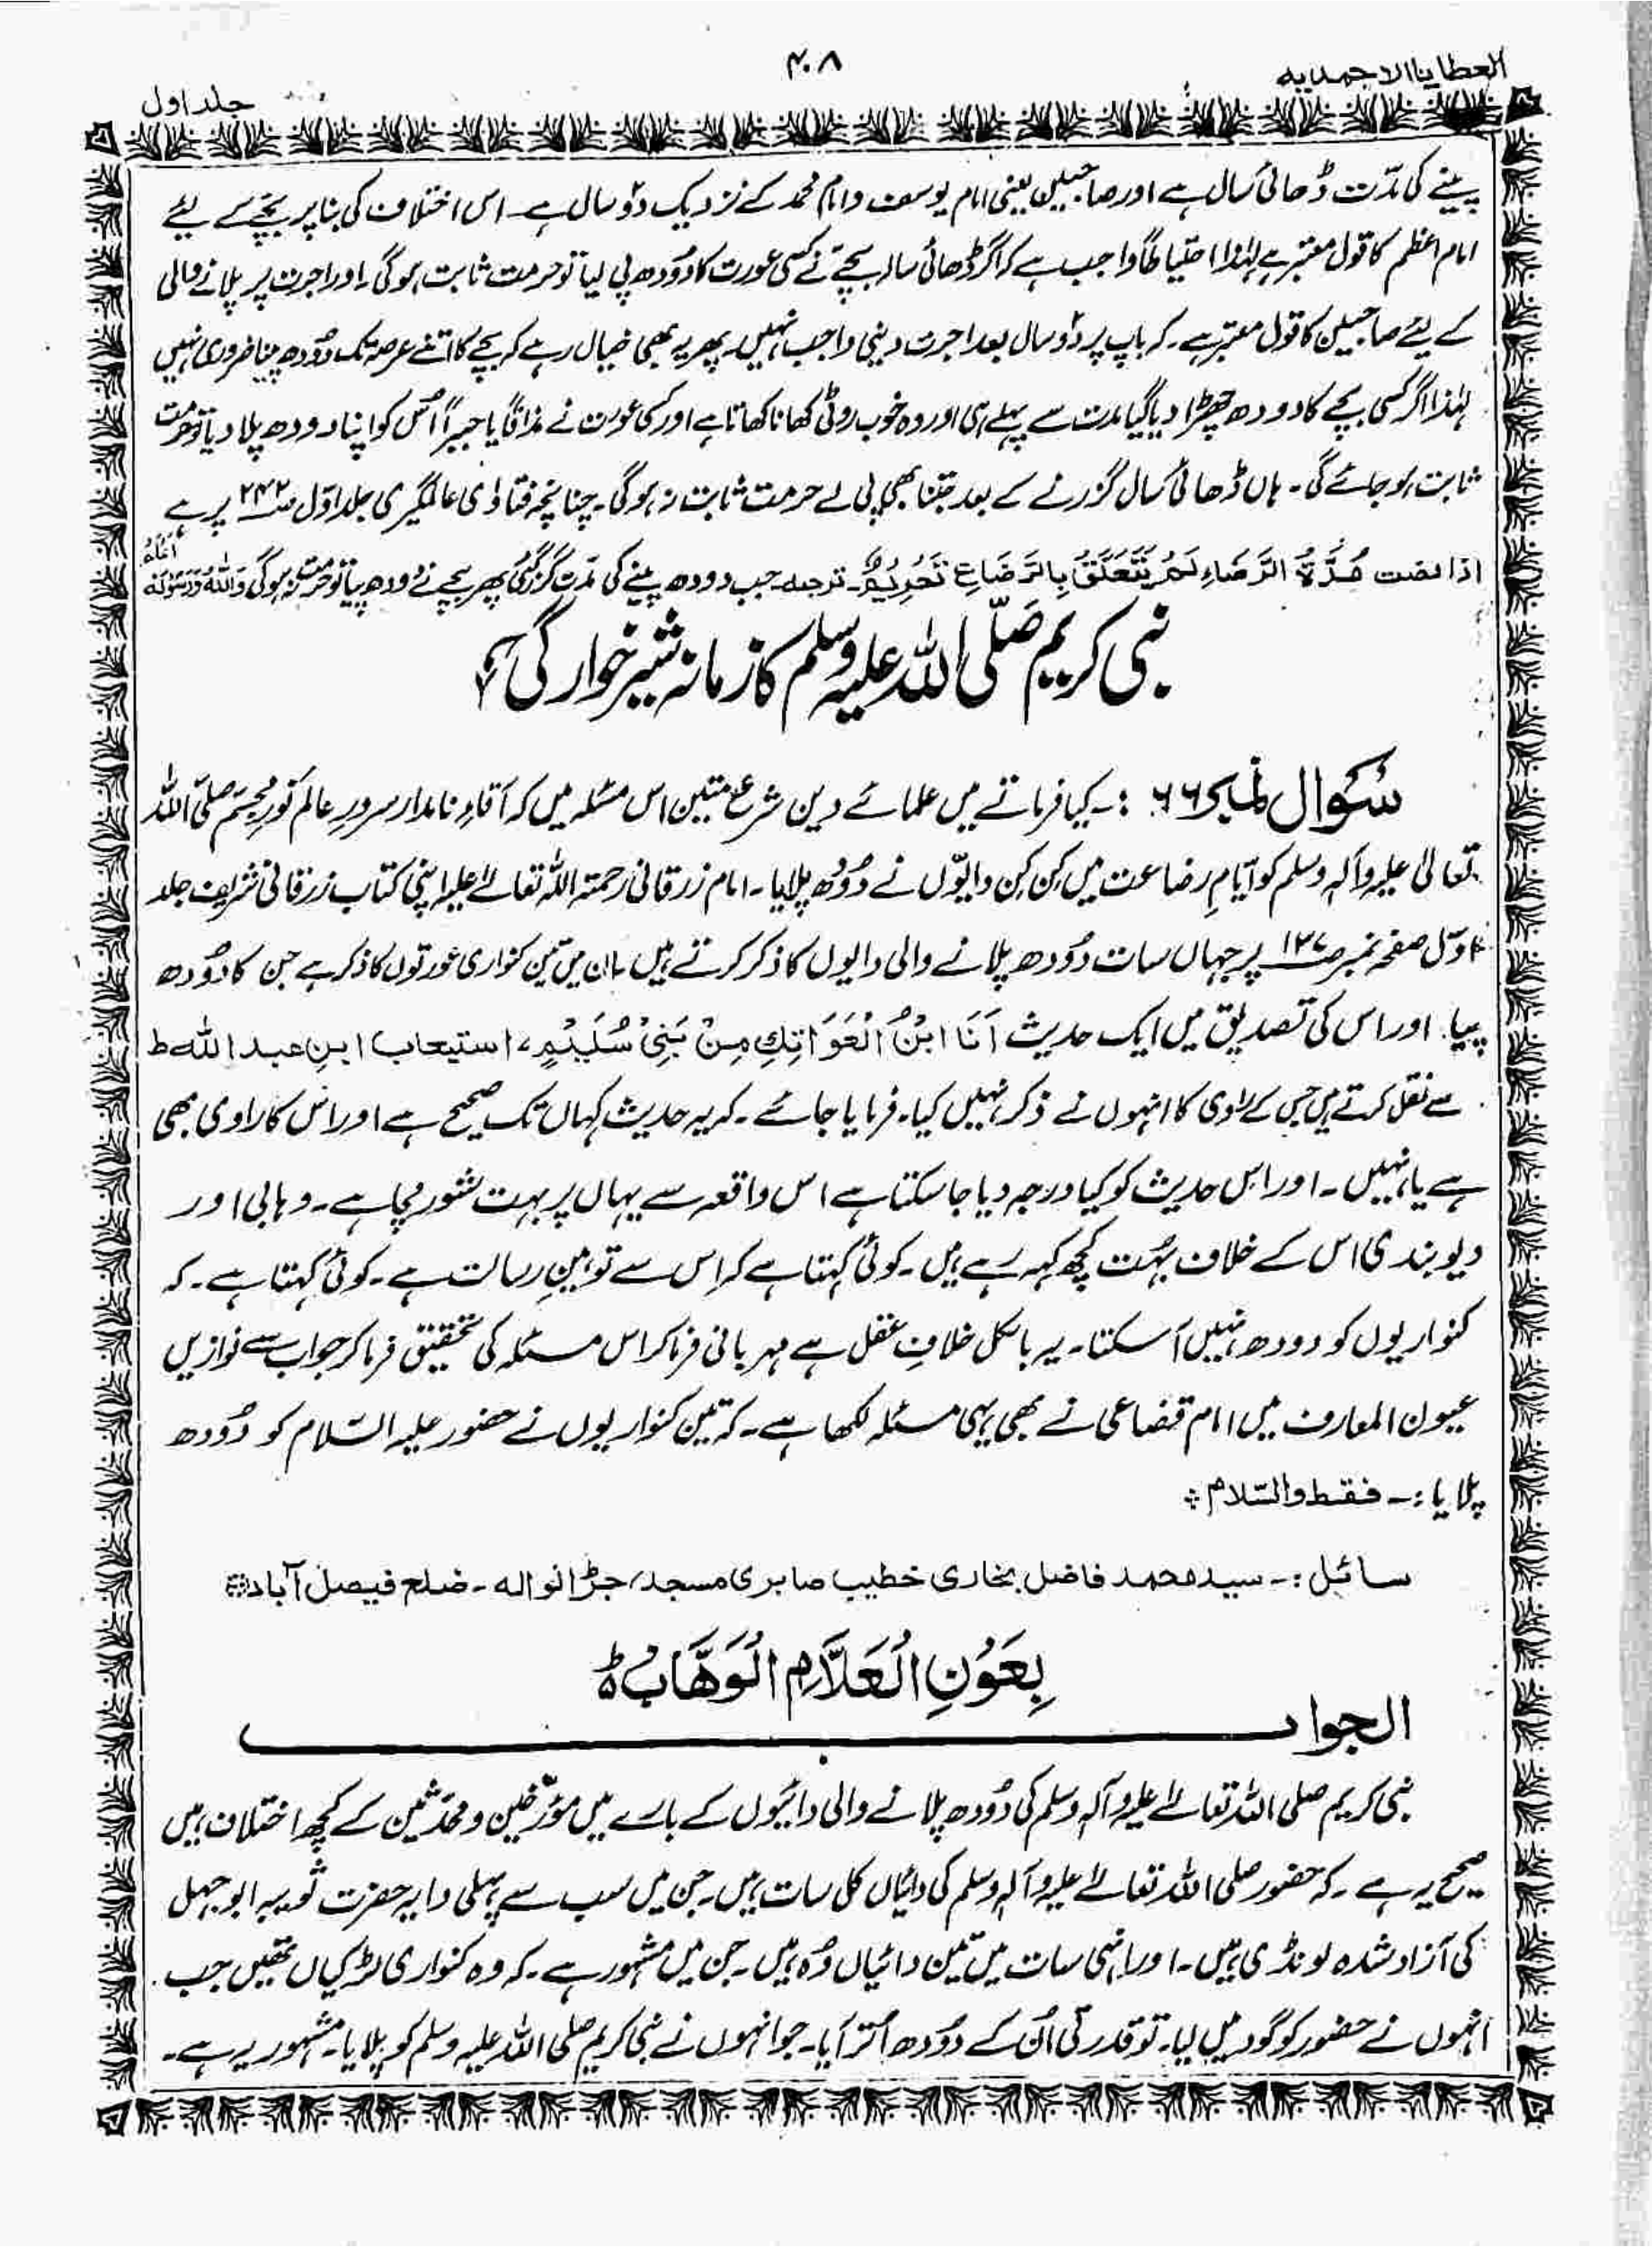 العطایا الاحمدیہ
۴۰۸
جلد اول
پینے کی مدّت ڈھائی سال ہے اور صاحبین یعنی امام یوسف و امام محمد کے نزدیک دو سال ہے۔ اس اختلاف کی بنا پر بچے کے لیئے
امام اعظم کا قول معتبر ہے لہٰذا احتیاطاً واجب ہے کہ اگر ڈھائی سالہ بچے نے کسی عورت کا دودھ پی لیا تو حرمت ثابت ہوگی۔ اور اجرت پر پلانے والی
کے لیئے صاحبین کا قول معتبر ہے۔ کہ باپ پر دو سال بعد اجرت دینی واجب نہیں۔ پھر یہ بھی خیال رہے کہ بچے کا اتنے عرصہ تک دودھ پینا ضروری نہیں
لہٰذا اگر کسی بچے کا دودھ چھڑا دیا گیا مدت سے پہلے ہی اور وہ خوب روٹی کھانا کھاتا ہے اور کسی عورت نے مذاقاً یا جبراً اُس کو اپنا دودھ پلا دیا تو حرمت
ثابت ہو جائے گی۔ ہاں ڈھائی سال گزرنے کے بعد جتنا بھی پی لے حرمت ثابت نہ ہوگی۔ چنانچہ فتاوٰی عالمگیری جلد اوّل صـ ۲۴۲ پر ہے
اذا مضت مُدَّةُ الرَّضَاءِ لَمْ يَتَعَلَّقْ بِالرَّضَاعِ تَحْرِيْمٌ۔ ترجمہ۔ جب دودھ پینے کی مدّت گزر گئی پھر بچے نے دودھ پیا تو حرمت نہ ہوگی وَاللهُ وَرَسُوْلُهٗ اَعْلَمُ
نبی کریم صَلَّی اللہ علیہ وسلم کا زمانہ شیر خوارگی
سُوال نمبر ۶۶ :۔ کیا فرماتے ہیں علمائے دین شرع متین اس مسئلہ میں کہ آقاءِ نامدار سرورِ عالم نُورِ مجسّم صلّی اللہ
تعالیٰ علیہ وآلہٖ وسلم کو ایّامِ رضاعت میں کِن کِن دایوّں نے دُودھ پلایا۔ امام زرقانی رحمتہ اللہ تعالےٰ علیہ اپنی کتاب زرقانی شریف جلد
اوّل صفحہ نمبر صـ ۱۳۷ پر جہاں سات دُودھ پلانے والی دایوں کا ذکر کرتے ہیں ہاں ان میں تین کنواری عورتوں کا ذکر ہے جن کا دُودھ
پیا۔ اور اس کی تصدیق میں ایک حدیث اَنَا ابْنُ الْعَوَاتِكِ مِنْ بَنِيْ سُلَيْمٍ، استیعاب ابنِ عبد اللہ ط
سے نقل کرتے ہیں جس کے راوی کا انہوں نے ذکر نہیں کیا۔ فرمایا جائے۔ کہ یہ حدیث کہاں تک صحیح ہے اور اس کا راوی بھی
ہے یا نہیں۔ اور اس حدیث کو کیا درجہ دیا جا سکتا ہے اس واقعہ سے یہاں پر بہت شور مچا ہے۔ وہابی اور
دیوبندی اس کے خلاف بہُت کچھ کہہ رہے ہیں۔ کوئی کہتا ہے کہ اِس سے توہینِ رسالت ہے۔ کوئی کہتا ہے۔ کہ
کنواریوں کو دودھ نہیں آ سکتا۔ یہ بالکل خلافِ عقل ہے مہربانی فرما کر اس مسئلہ کی تحقیق فرما کر جواب سے نوازیں
عیون المعارف میں امام قضاعی نے بھی یہی مسئلہ لکھا ہے۔ کہ تین کنواریوں نے حضور علیہ السّلام کو دُودھ
پلایا :۔ فقط والسّلام
سائل :۔ سید محمد فاضل بخاری خطیب صابری مسجد، جڑانوالہ۔ ضلع فیصل آباد
بِعَوْنِ الْعَلَّامِ الْوَهَّابْ ط
الجواب
نبی کریم صلی اللہ تعالےٰ علیہ وآلہٖ وسلم کی دُودھ پلانے والی دائیوں کے بارے میں مؤرّخین و محدّثین کے کچھ اختلاف ہیں
صحیح یہ ہے۔ کہ حضور صلی اللہ تعالےٰ علیہ وآلہٖ وسلم کی دائیاں کل سات ہیں۔ جن میں سب سے پہلی دایہ حضرت ثویبہ ابو جہل
کی آزاد شدہ لونڈی ہیں۔ اور انہی سات میں تین دائیاں وُہ ہیں۔ جن میں مشہور ہے۔ کہ وہ کنواری لڑکیاں تھیں جب
انہوں نے حضور کو گود میں لیا۔ تو قدرتی اُن کے دُودھ اُتر آیا۔ جو انہوں نے نبی کریم صلی اللہ علیہ وسلم کو پلایا۔ مشہور یہ ہے۔